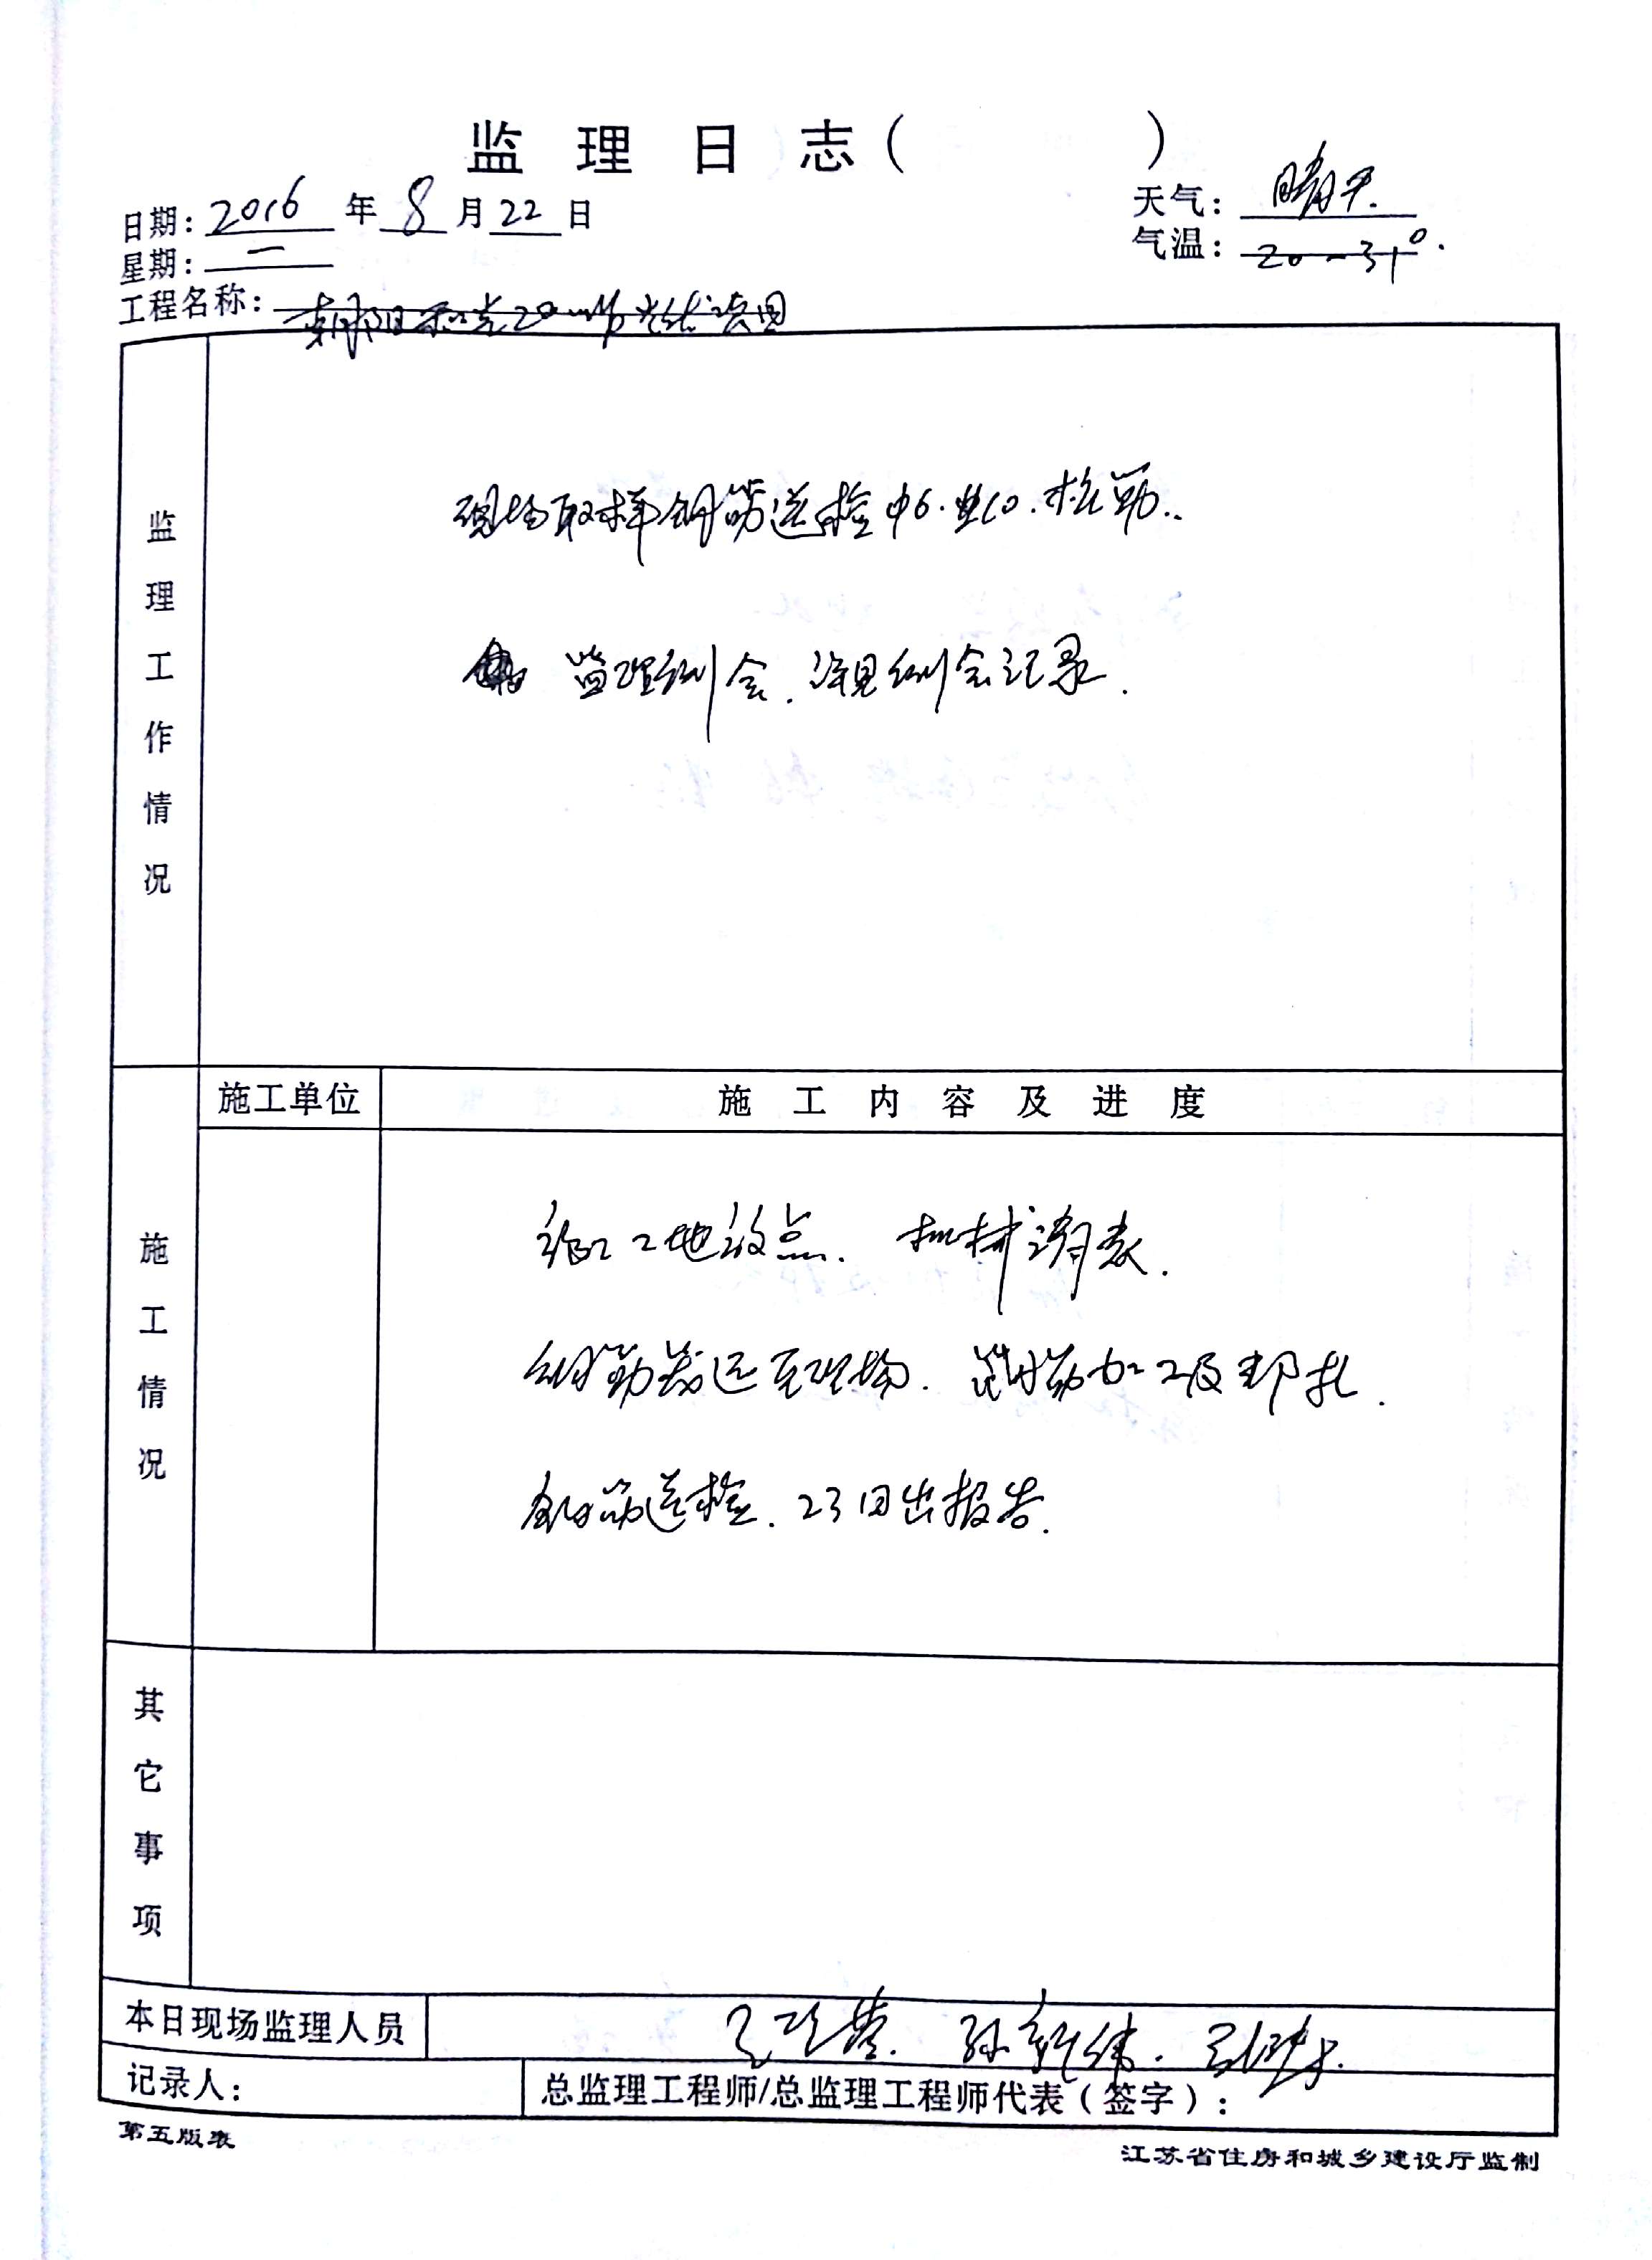 监理日志(          )
日期: 2016 年 8 月 22 日
天气: 晴
星期: 一
气温: 20-31°.
工程名称: 朝阳和光20MW光伏项目
监理工作情况
现场取样钢筋送检φ6.
监理例会.详见例会记录.
施工单位
施工内容及进度
施工情况
施工工地放点.机械
钢筋 运至现场. 加工及绑扎.
钢筋送检.23日出报告.
其它事项
本日现场监理人员
孙新伟.
记录人:
总监理工程师/总监理工程师代表(签字):
第五版表
江苏省住房和城乡建设厅监制